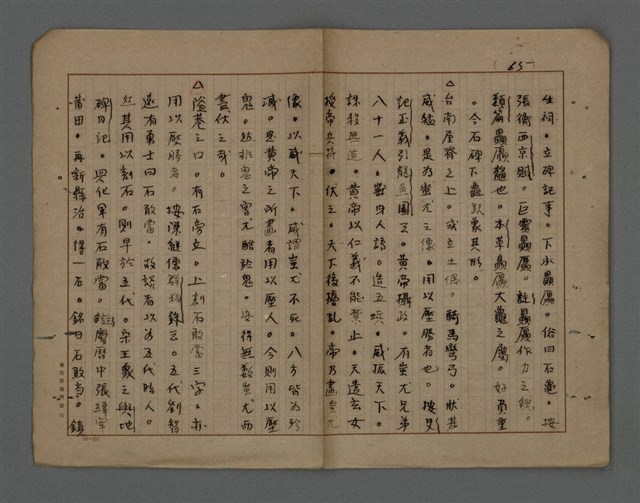 (65)
生祠。立碑記事。下承贔屭。俗曰石龜。按
張衡西京賦。巨靈贔屭。註贔屭作力之貌。
類篇贔屭鼇也。本草贔屭大龜之屬。好負重
。今石碑下龜趺象其形。
△台南屋脊之上。或立土偶。騎馬彎弓。狀甚
威猛。是為蚩尤之像。用以壓勝者也。按史
記正義引龍魚圖云。黃帝攝政。有蚩尤兄弟
八十一人。獸身人語。造五兵。威振天下。
誅殺無道。黃帝以仁義不能禁止。天遣玄女
授帝兵符。伏之。天下復擾亂。帝乃畫蚩尤
像。以威天下。咸謂蚩尤不死。八方皆為殄
滅。是黃帝之所畫者用以壓人。今則用以壓
鬼。然在鬼之害尤酷於鬼。安得無數蚩尤而
盡伏之哉。
△隘巷之口。有石旁立。上刻石敢當三字。亦
用以壓勝者。按陳繼儒群碎錄云。五代劉智
遠有勇士曰石敢當。故談者以為五代時人。
然其用以刻石。則早於五代。宋王象之輿地
碑目記。興化軍有石敢當。慶曆中張緯宰
莆田。再新縣治。得一石。銘曰石敢當。鎮